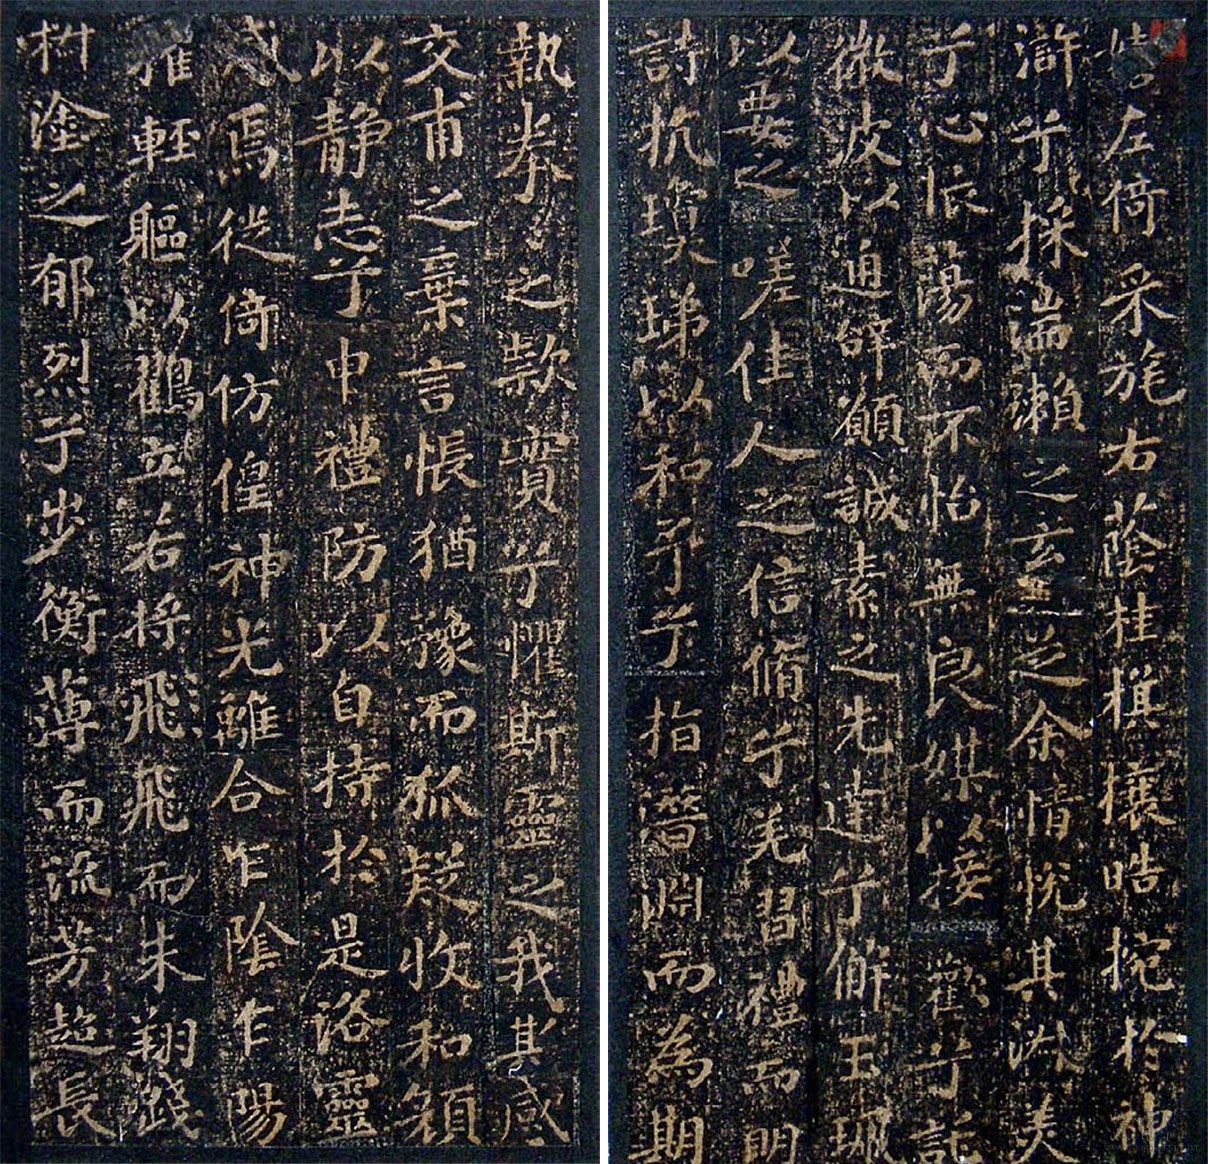 嬉左倚采旄右蔭桂旗攘皓捥於神
滸兮採湍瀨之玄芝余情悅其淑美
兮心振蕩而不怡無良媒以接歡兮託
微波以通辭願誠素之先達兮解玉珮
以要之嗟佳人之信脩兮羌習禮而明
詩抗瓊珶以和予兮指潛淵而為期
執拳々之款實兮懼斯靈之我其感
交甫之棄言悵猶豫而狐疑收和顏
以靜志兮申禮防以自持於是洛靈
感焉徙倚仿偟神光離合乍陰乍陽
擢輕軀以鶴立若將飛飛而未翔踐
椒塗之郁烈兮步衡薄而流芳超長